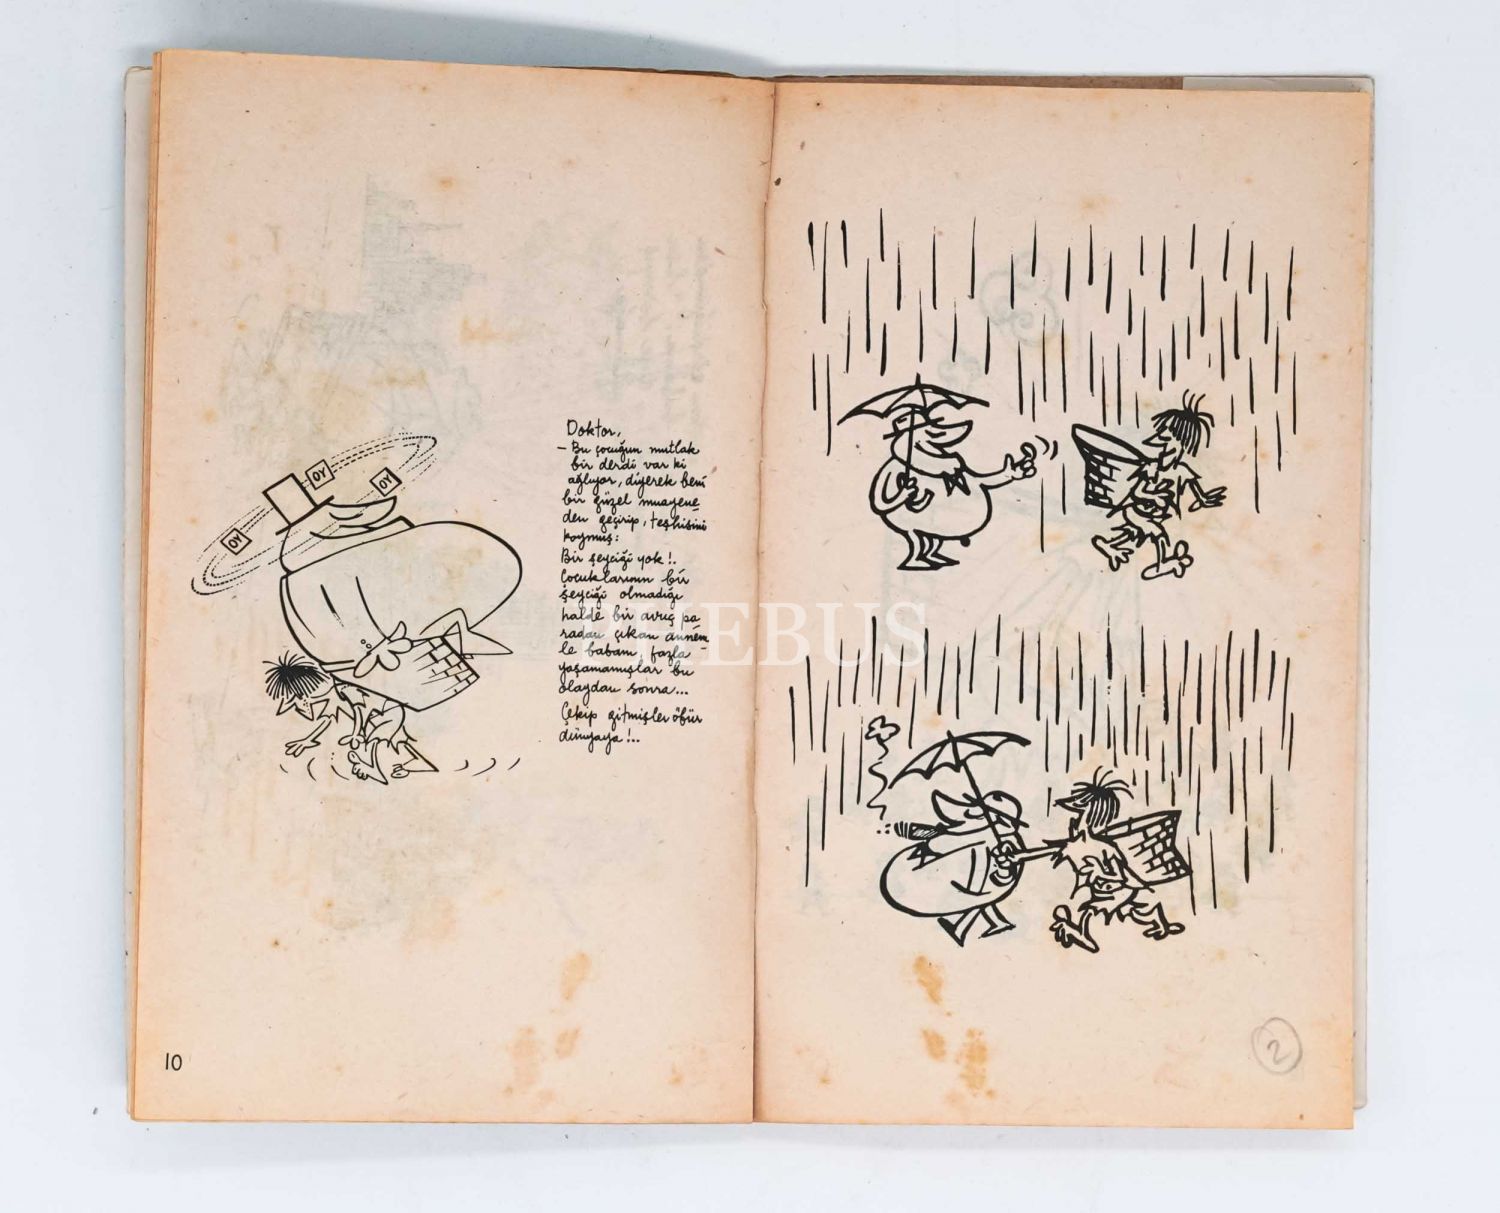 OY
OY
OY
Doktor,
— Bu çocuğun mutlak
bir derdi var ki
ağlıyor, diyerek beni
bir güzel muayene-
den geçirip, teşhisini
koymuş:
Bir şeyciği yok!.
Çocuklarının bir
şeyciği olmadığı
halde bir avuç pa
radan çıkan annem-
le babam, fazla
yaşamamışlar bu
olaydan sonra...
Çekip gitmişler öbür
dünyaya!..
10
PHEBUS
2